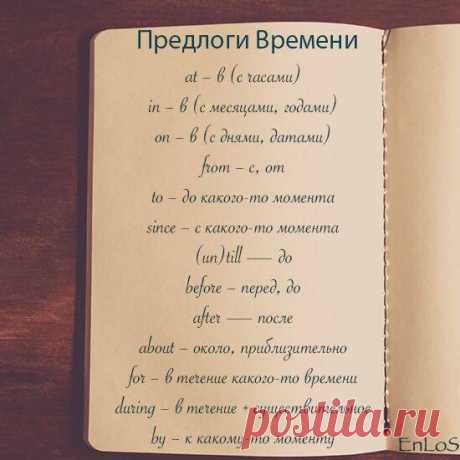 Предлоги Времени
at – в (с часами)
in – в (с месяцами, годами)
on – в (с днями, датами)
from – с, от
to – до какого-то момента
since – с какого-то момента
(un)till — до
before – перед, до
after — после
about – около, приблизительно
for – в течение какого-то времени
during – в течение + существительное
by – к какому-то моменту
EnLoS
postila.ru